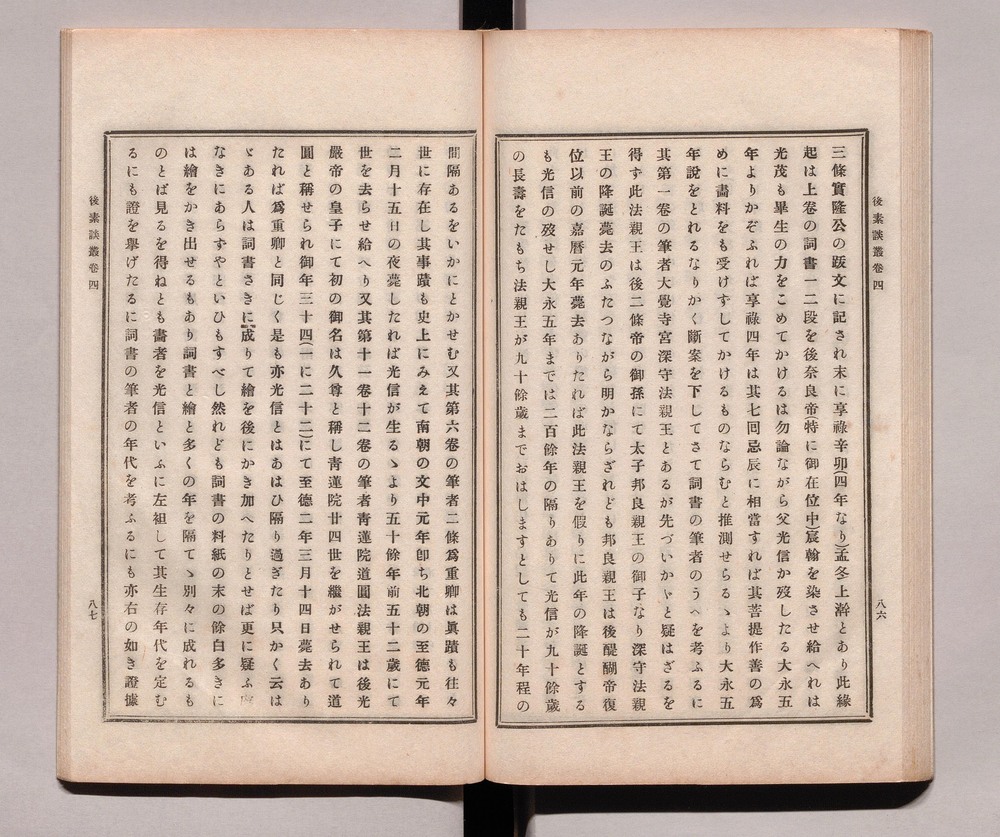 後素談叢卷四
八六
三條實隆公の跋文に記され末に享祿辛卯(四年なり)孟冬上澣とあり此緣
起は上卷の詞書一二段を後奈良帝(特に御在位中)宸翰を染させ給へれは
光茂も畢生の力をこめてかけるは勿論ながら父光信か歿したる大永五
年よりかぞふれば享祿四年は其七回忌辰に相當すれば其菩提作善の爲
めに畵料をも受けすしてかけるものならむと推測せらるゝより大永五
年說をとれるなりかく斷案を下してさて詞書の筆者のうへを考ふるに
其第一卷の筆者大覺寺宮深守法親王とあるが先づいかゞと疑はざるを
得ず此法親王は後二條帝の御孫にて太子邦良親王の御子なり深守法親
王の降誕薨去のふたつながら明かならざれども邦良親王は後醍醐帝復
位以前の嘉曆元年薨去ありたれば此法親王を假りに此年の降誕とする
も光信の歿せし大永五年までは二百餘年の隔りありて光信が九十餘歲
の長壽をたもち法親王が九十餘歲までおはしますとしても二十年程の
間隔あるをいかにとかせむ又其第六卷の筆者二條爲重卿は眞蹟も往々
世に存在し其事蹟も史上にみえて南朝の文中元年卽ち北朝の至德元年
二月十五日の夜薨したれば光信が生るゝより五十餘年前五十二歲にて
世を去らせ給へり又其第十一卷十二卷の筆者靑蓮院道圓法親王は後光
嚴帝の皇子にて初の御名は久尊と稱し靑蓮院廿四世を繼がせられて道
圓と稱せられ御年三十四(一に二十二)にて至德二年三月十四日薨去あり
たれば爲重卿と同じく是も亦光信とはあはひ隔り過ぎたり只かく云は
ゞある人は詞書さきに成りて繪を後にかき加へたりとせば更に疑ふ
なきにあらずやといひもすべし然れども詞書の料紙の末の餘白多きに
は繪をかき出せるもあり詞書と繪と多くの年を隔てゝ別々に成れるも
のとば見るを得ねとも畵者を光信といふに左袒して其生存年代を定む
るにも證を擧げたるに詞書の筆者の年代を考ふるにも亦右の如き證據
後素談叢卷四
八七